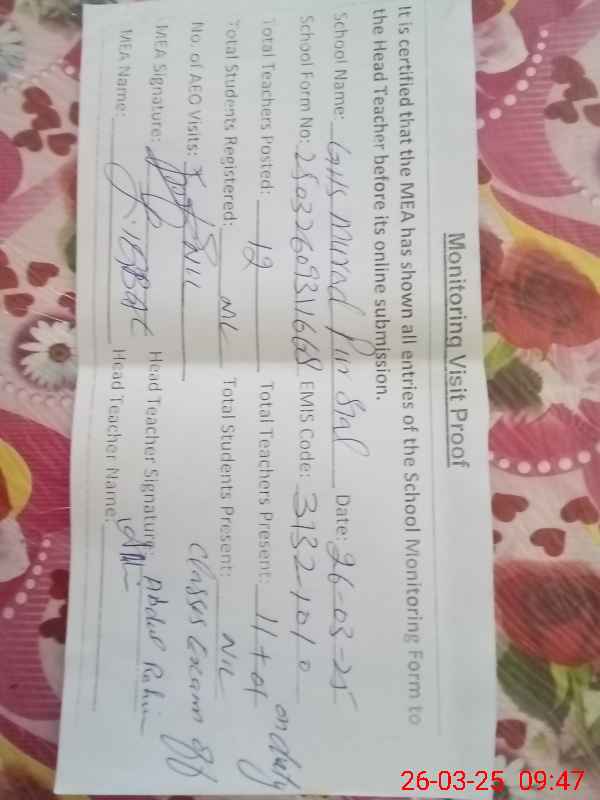 Monitoring Visit Proof
It is certified that the MEA has shown all entries of the School Monitoring Form to
the Head Teacher before its online submission.
School Name: GHS Murad Pur Sial Date: 26-03-25
School Form No: EMIS Code: 31321010
Total Teachers Posted: 12 Total Teachers Present: 11+01 on duty
Total Students Registered: NIL Total Students Present: NIL
No. of AEO Visits: NIL Classes Exam off
MEA Signature: Head Teacher Signature: Abdul Rahim
MEA Name: Head Teacher Name:
26-03-25 09:47